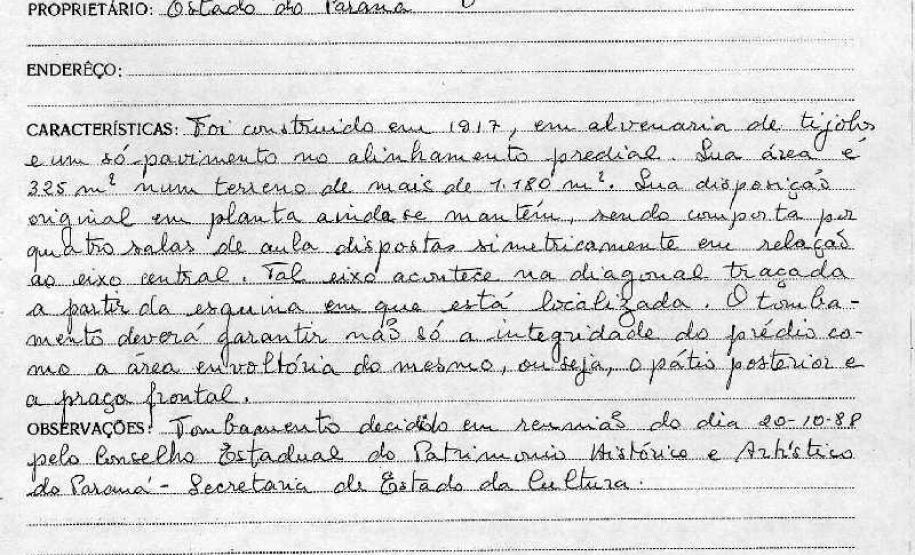 PROPRIETÁRIO: Estado do Paraná
ENDERÊÇO:
CARACTERÍSTICAS: Foi construído em 1917, em alvenaria de tijolos
e um só pavimento no alinhamento predial. Sua área é
325 m² num terreno de mais de 1.180 m². Sua disposição
original em planta ainda se mantém, sendo composta por
quatro salas de aula dispostas simetricamente em relação
ao eixo central. Tal eixo acontece na diagonal traçada
a partir da esquina em que está localizada. O tomba-
mento deverá garantir não só a integridade do prédio co-
mo a área envoltória do mesmo, ou seja, o pátio posterior e
a praça frontal.
OBSERVAÇÕES: Tombamento decidido em reunião do dia 20-10-88
pelo Conselho Estadual do Patrimonio Histórico e Artístico
do Paraná - Secretaria de Estado da Cultura.